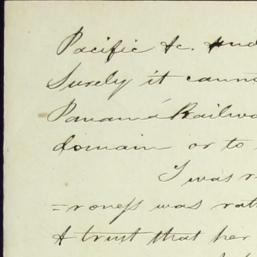 Pacific &c. and
Surely it cann
Panamá Railw
domain or to
I was
=roness was rat
I trust that her